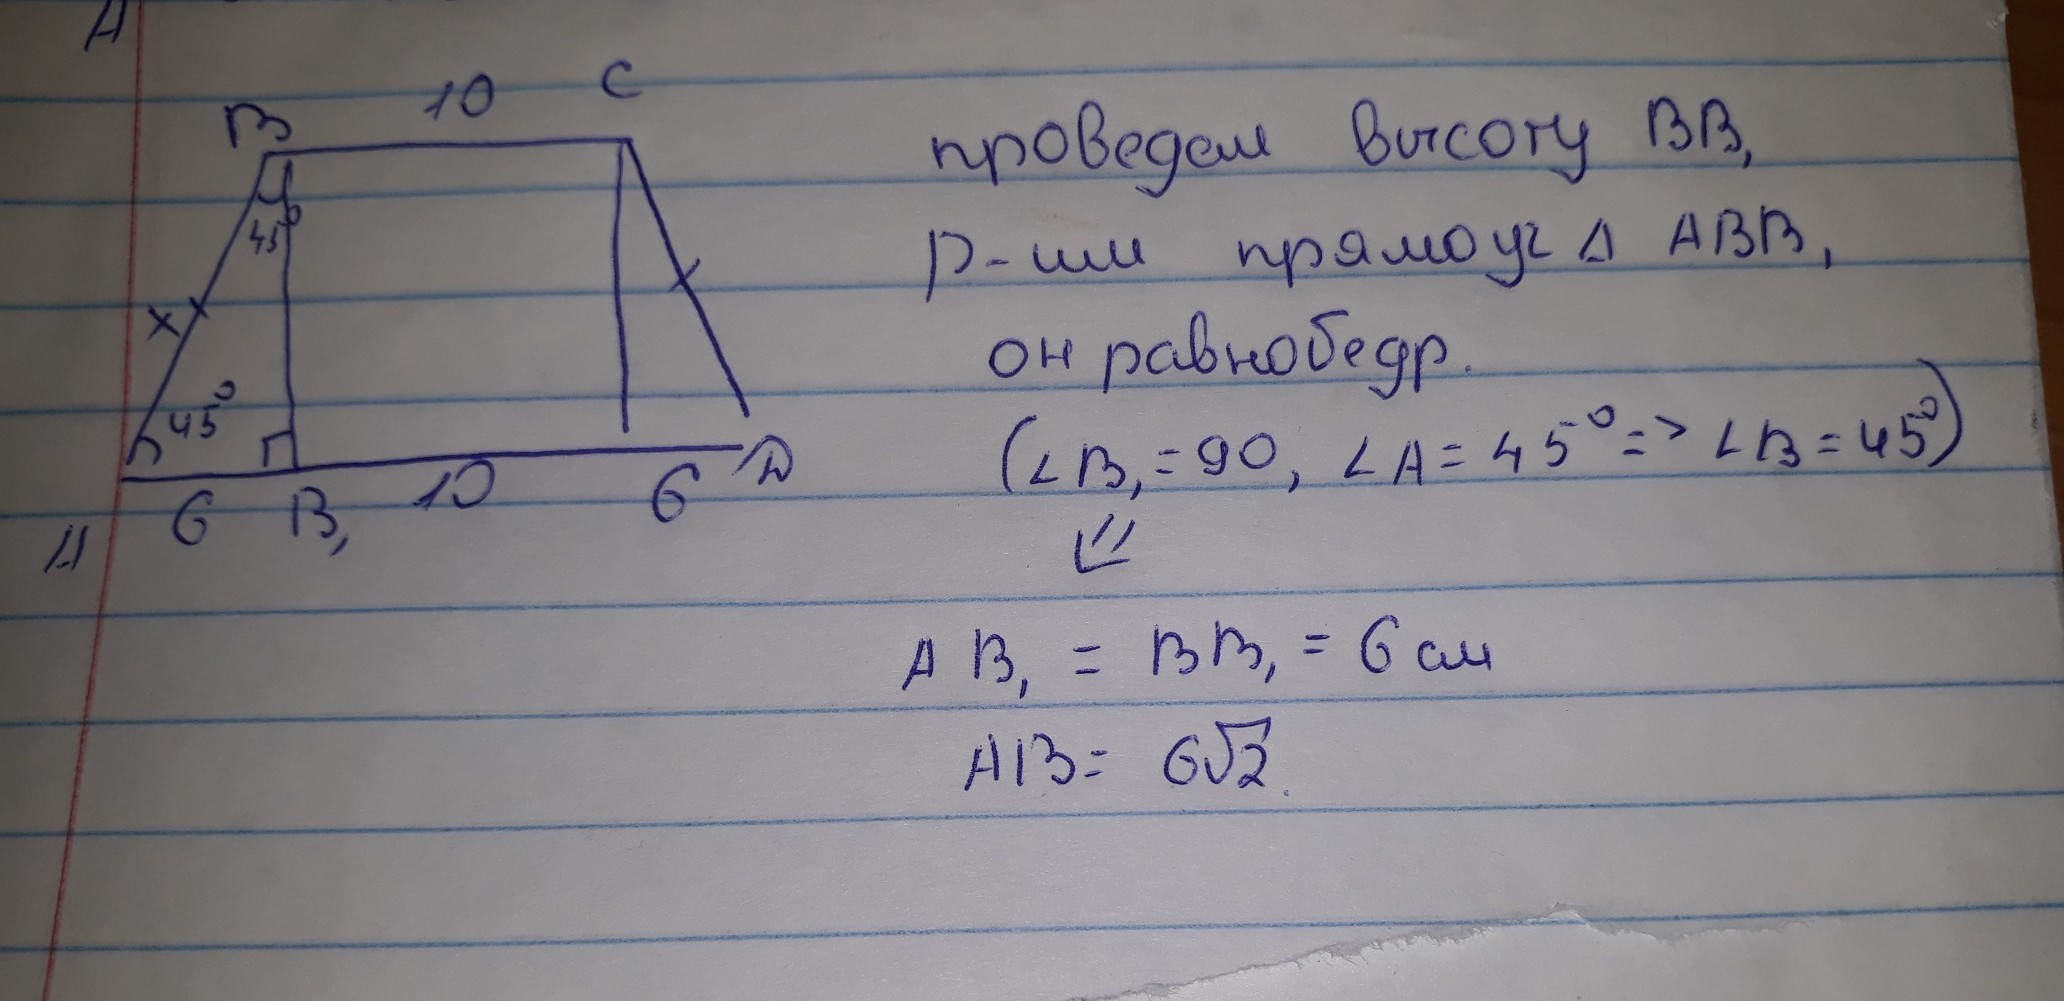 A
10 C
B
45°
x
45°
6 B₁ 10 6 D
A
проведем высоту BB₁
р-им прямоуг Δ ABB₁
он равнобедр.
(∠B₁ = 90, ∠A = 45° => ∠B = 45°)
⇙
AB₁ = BB₁ = 6 см
AB = 6√2.